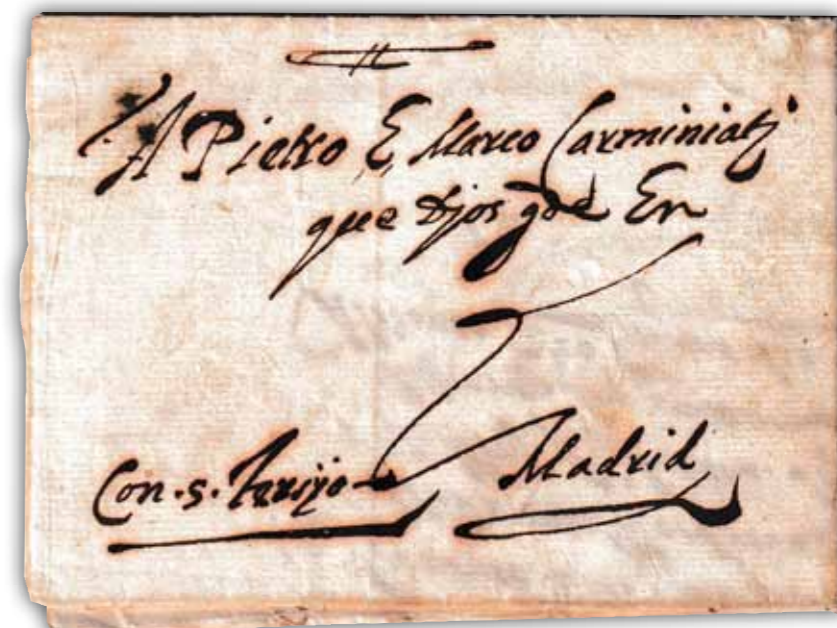 A Pietro E Marco Carminiatj
que Djos gde En
Con .s. 
Madrid